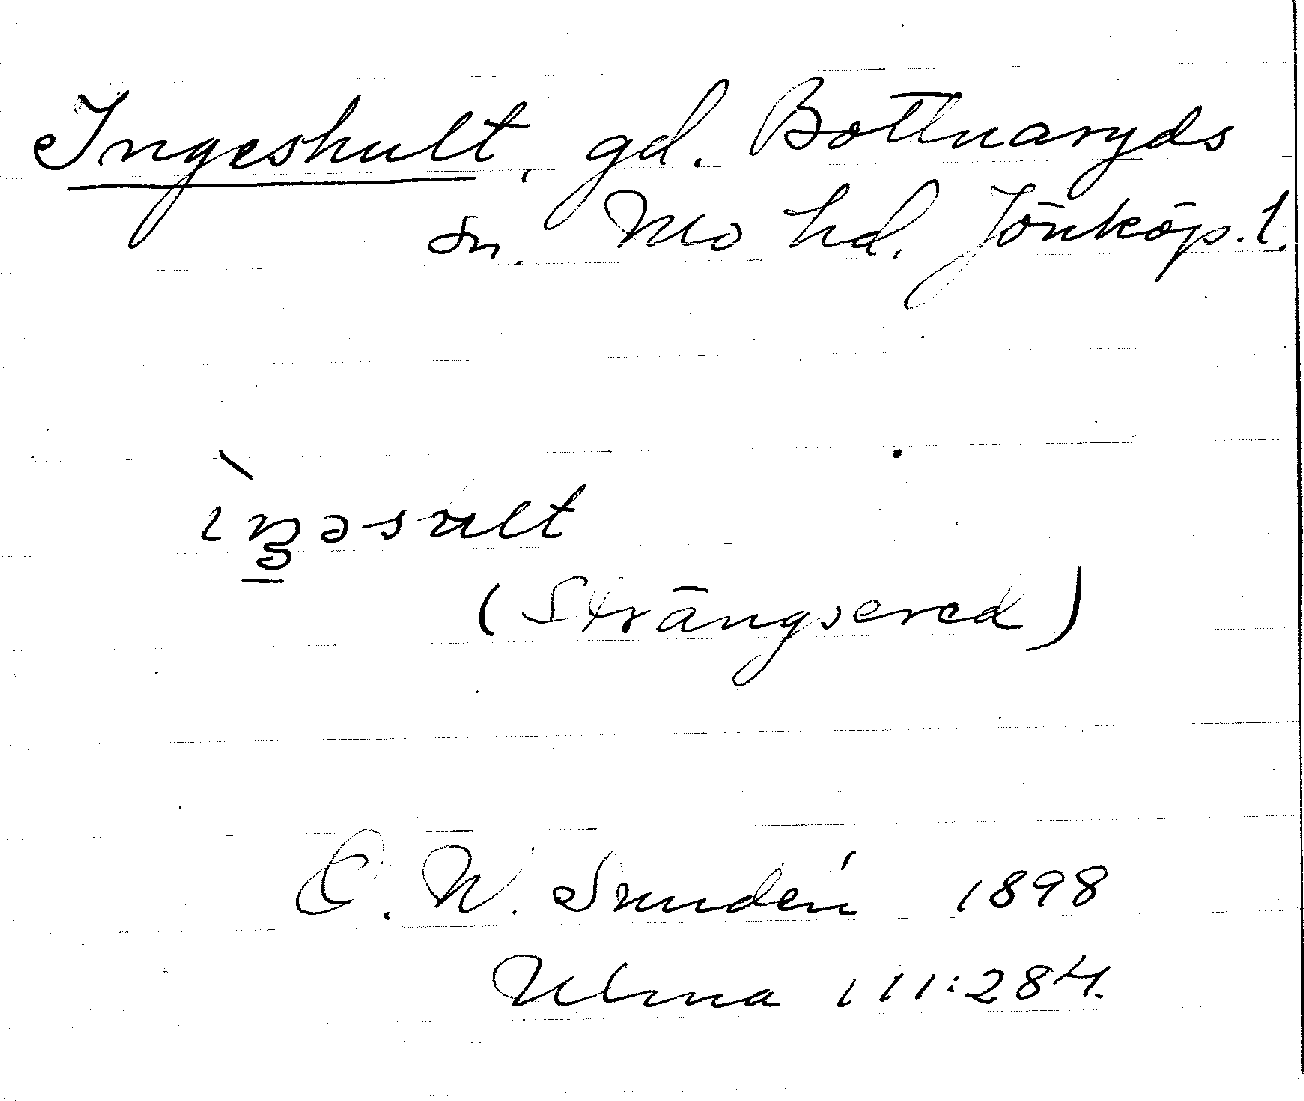 Ingeshult, gd. Bottnaryds
sn. Mo hd. Jönköp. l.
(Strängsered)
E. W. 1898
Ulma 111:284.